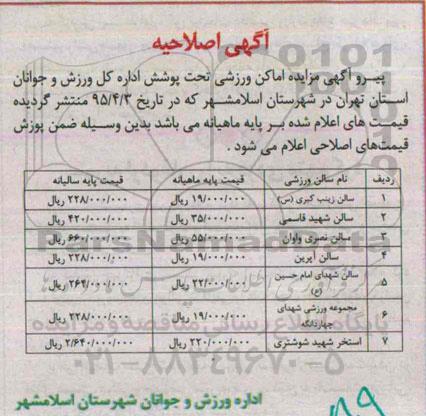 آگهی اصلاحیه
پیرو آگهی مزایده اماکن ورزشی تحت پوشش اداره کل ورزش و جوانان
استان تهران در شهرستان اسلامشهر که در تاریخ ۹۵/۴/۳ منتشر گردیده
قیمت های اعلام شده بر پایه ماهیانه می باشد بدین وسیله ضمن پوزش
قیمت‌های اصلاحی اعلام می شود .
ردیف نام سالن ورزشی قیمت پایه ماهیانه قیمت پایه سالیانه
۱ سالن زینب کبری (س) ۱۹/۰۰۰/۰۰۰ ریال ۲۲۸/۰۰۰/۰۰۰ ریال
۲ سالن شهید قاسمی ۳۵/۰۰۰/۰۰۰ ریال ۴۲۰/۰۰۰/۰۰۰ ریال
۳ سالن نصری واوان ۵۵/۰۰۰/۰۰۰ ریال ۶۶۰/۰۰۰/۰۰۰ ریال
۴ سالن آبرین ۱۹/۰۰۰/۰۰۰ ریال ۲۲۸/۰۰۰/۰۰۰ ریال
۵ سالن شهدای امام حسین (ع) ۲۲/۰۰۰/۰۰۰ ریال ۲۶۴/۰۰۰/۰۰۰ ریال
۶ مجموعه ورزشی شهدای چهاردانگه ۱۹/۰۰۰/۰۰۰ ریال ۲۲۸/۰۰۰/۰۰۰ ریال
۷ استخر شهید شوشتری ۲۲۰/۰۰۰/۰۰۰ ریال ۲/۶۴۰/۰۰۰/۰۰۰ ریال
پایگاه اطلاع رسانی مناقصه و مزایده
۰۲۱-۸۸۳۴۹۶۷۰-۵
اداره ورزش و جوانان شهرستان اسلامشهر